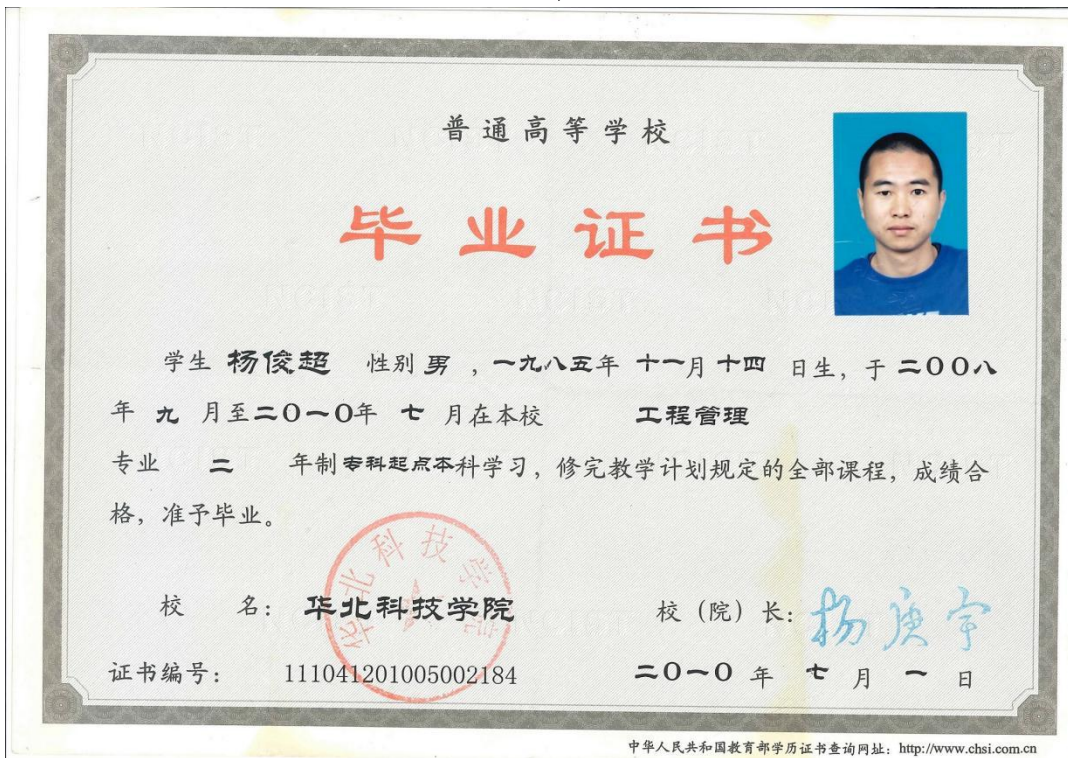 普通高等学校
毕业证书
学生 杨俊超 性别 男 ，一九八五年 十一月 十四 日生，于 二〇〇八
年 九 月至二〇一〇年 七 月在本校 工程管理
专业 二 年制专科起点本科学习，修完教学计划规定的全部课程，成绩合
格，准予毕业。
华北科技学院
校 名： 华北科技学院 校（院）长：杨庚宇
证书编号： 111041201005002184 二〇一〇 年 七 月 一 日
中华人民共和国教育部学历证书查询网址：http://www.chsi.com.cn